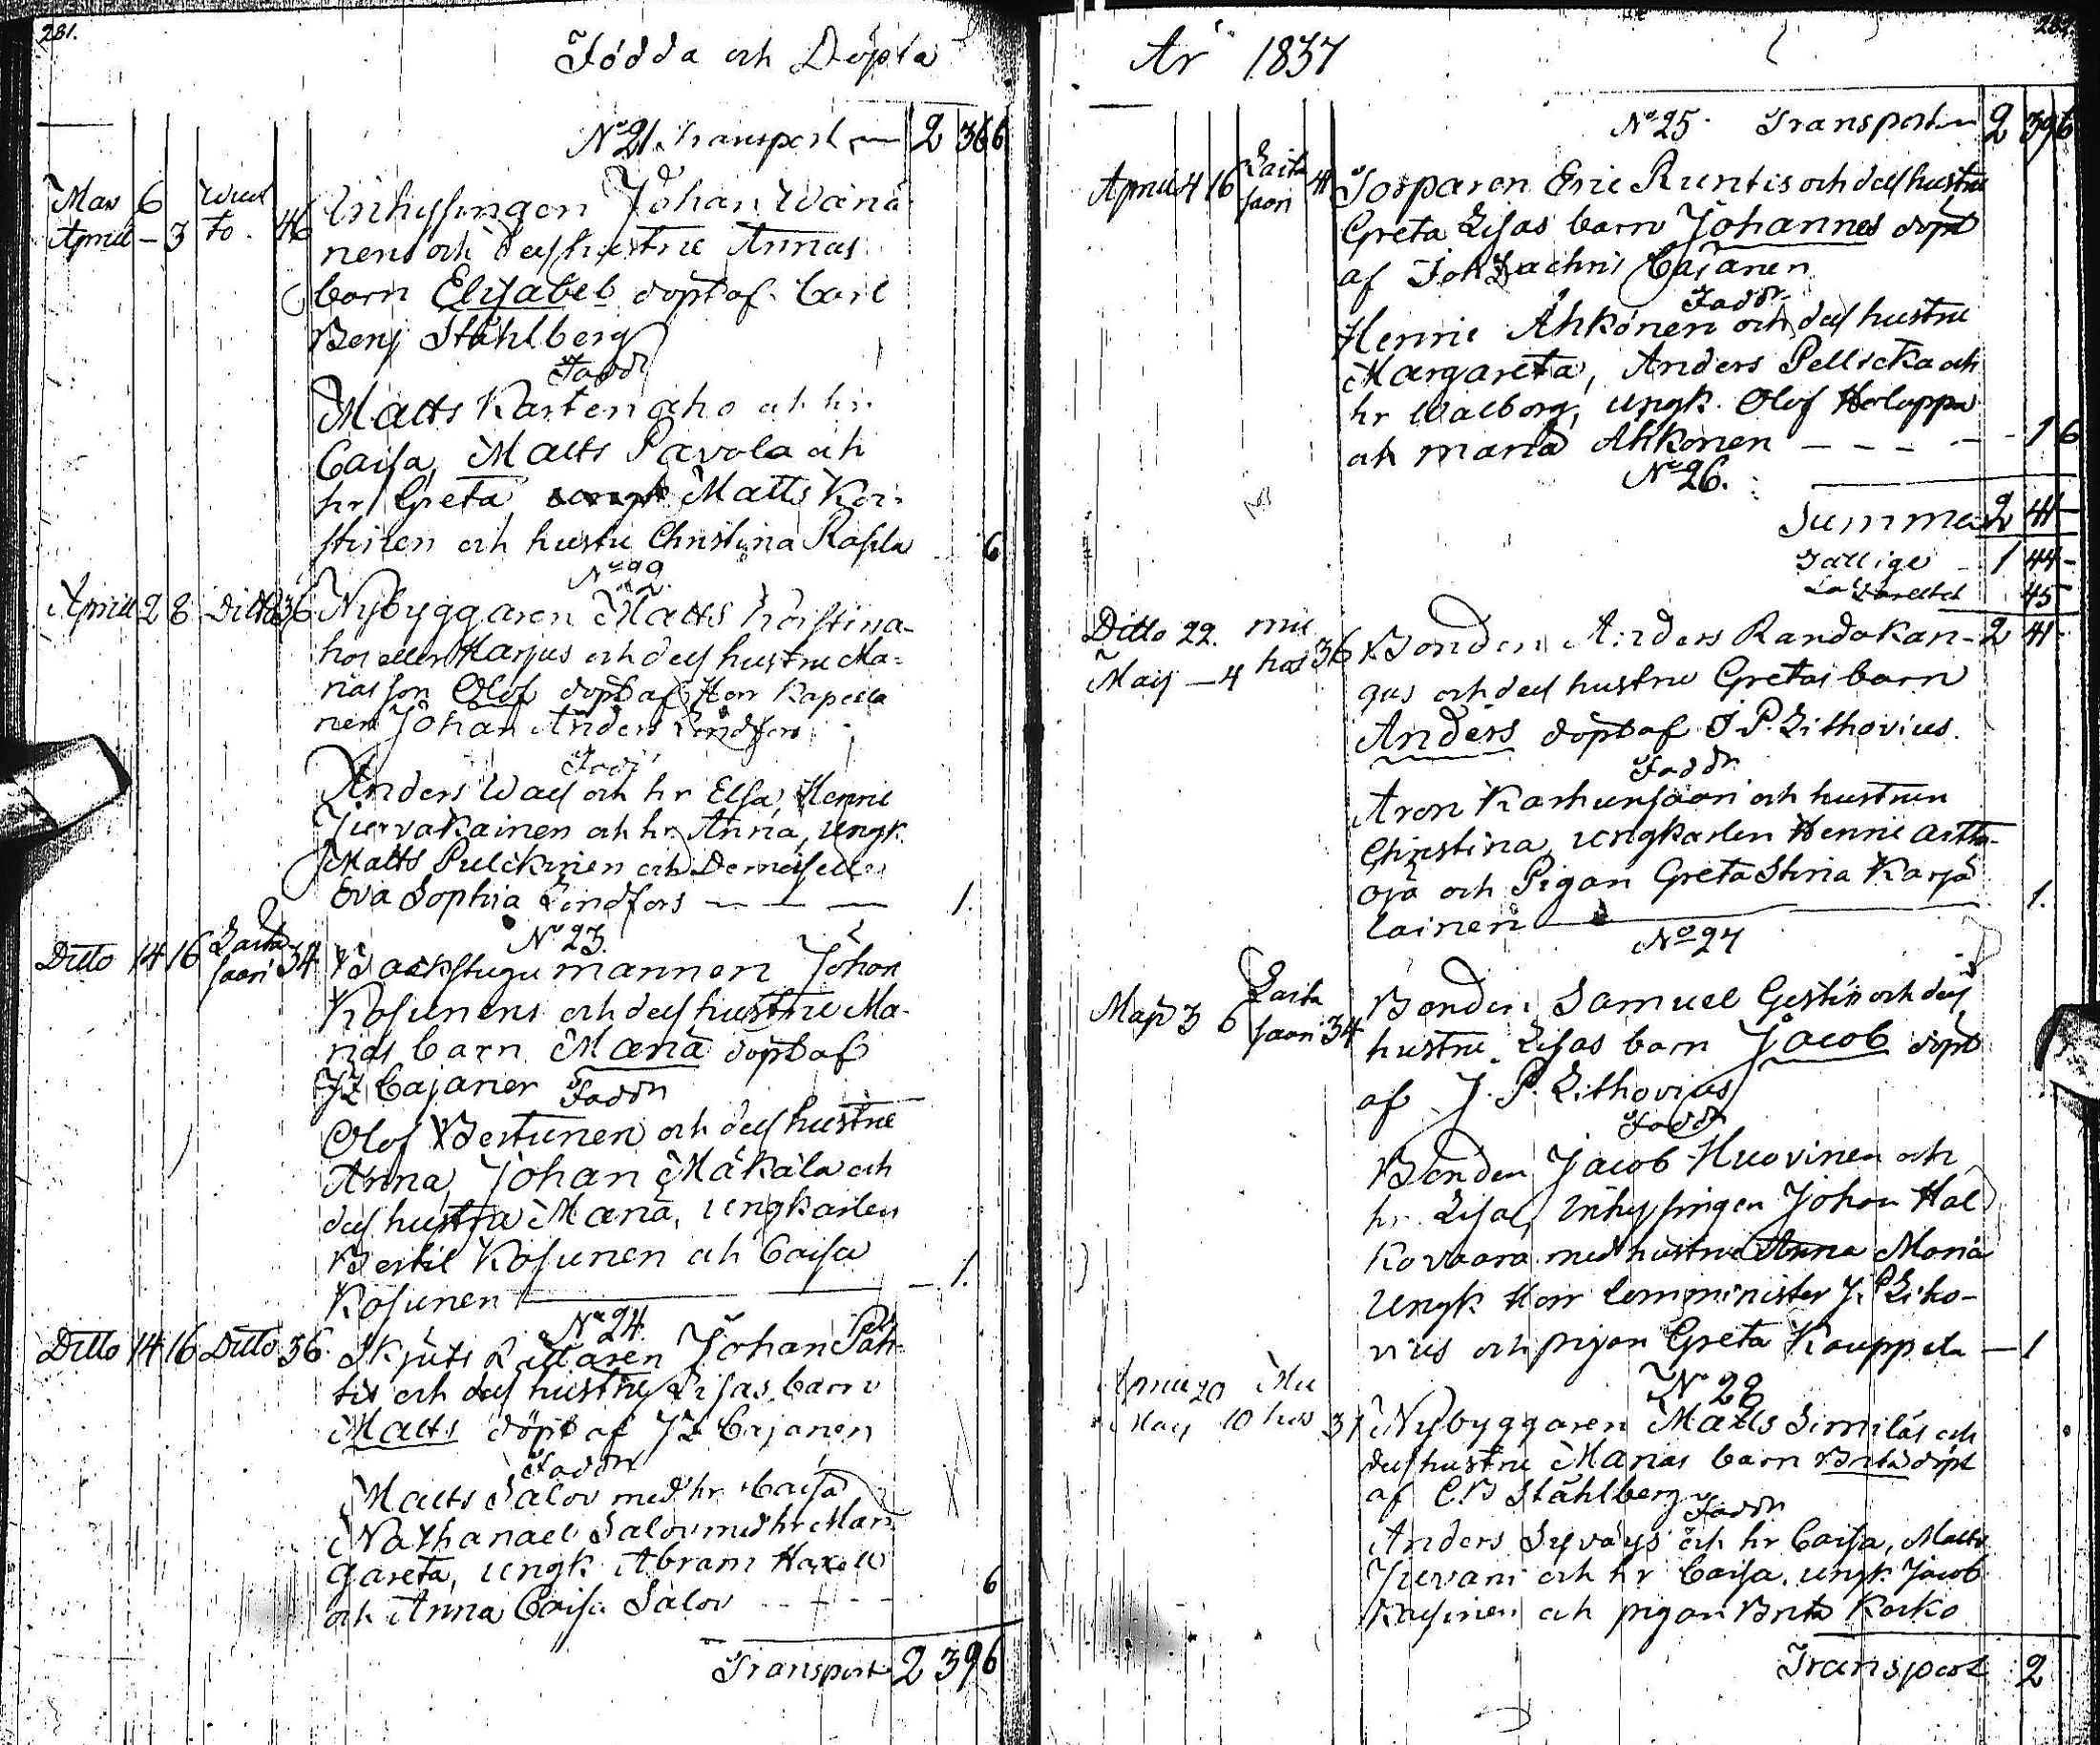 281.
Födda och Döpta
No 21 Transport — 2 36 6
Mars 6
April – 3 to. 46
Inhysingen Johan Wänä-
nens och dess hustru Annas
barn Elisabeb döpt af Carl
Benj Ståhlberg
Fadd
Matts Kartenaho och hr
Caisa, Matts Pavola och
hr Greta, Matts Kor-
stinen och hustru Christina
6
No 22
April 2 8 Ditto 36
Nybyggaren Matts
eller Karjus och dess hustru Ma-
rias son Olof döpt af Herr Kapella
nen Johan Anders Lindfors
Fadd
Anders Wass och hr Elsa, Henric
Jurvakainen och hr Anna, Ungk.
Matts Pulckinen och Demoiselle
Eva Sophia Lindfors — — — 1.
No 23.
Ditto 14 16 Laita
saari 34
Backstugumannen Johan
Kosunens och dess hustru Ma-
rias barn Maria döpt af
JZ Cajanen Faddr
Olof Bertunen och dess hustru
Anna, Johan Mäkälä och
dess hustru Maria, Ungkarlen
Bertil Kosunen och Caisa
Kosunen — 1.
No 24.
Ditto 14 16 Ditto 36.
Skjuts Rättaren Johan Pät-
tis och dess hustru Lisas barn
Matts döpt af JZ Cajanen
Faddr
Matts Salov med hr Caisa
Nathanael Salov med hr Mar-
gareta, Ungk Abram
och Anna Caisa Salov - - - - 6
Transport 2 39 6
År 1837
No 25. Transport 2 39 6
April 4 16 Laita
saari 41
Torparen Eric Runtis och dess hustru
Greta Lisas barn Johannes döpt
af Joh Zachris Cajanen
Faddr
Henric Ahkonen och dess hustru
Margareta, Anders Pellicka och
hr Walborg, Ungk. Olof Holappa
och Maria Ahkonen - - - - 1 6
No 26.
Summa 2 41 –
1 44 –
45
Ditto 22. mu
Maij – 4 hos 36
Bonden Anders Randakan- 2 41
gas och dess hustru Gretas barn
Anders döpt af J. P. Lithovius.
Faddr
Aron Karhunsaari och hustrun
Christina, Ungkarlen Henric Artto-
oja och Pigan Greta Stina Karja
lainen — 1.
No 27
Maji 3 6 Laita
saari 34
Bonden Samuel Gästis och dess
hustru Lisas barn Jacob döpt
af J. P. Lithovius
Faddr
Bonden Jacob Huovinen och
hr. Lisa, Inhysingen Johan Hal
kovaara med hustru Anna Maria
Ungk Herr Comminister J. P Litho-
vius och pigan Greta Kauppila — 1
No 28
April 20 Mu
Maij 10 hos 31
Nybyggaren Matts Similäs och
dess hustru Marias barn Brita döpt
af C. B Ståhlberg Faddr
Anders Syväys och hr Caisa, Matts
Juvani och hr Caisa, Ungk Jacob
och pigan Brita Korko
Transport 2